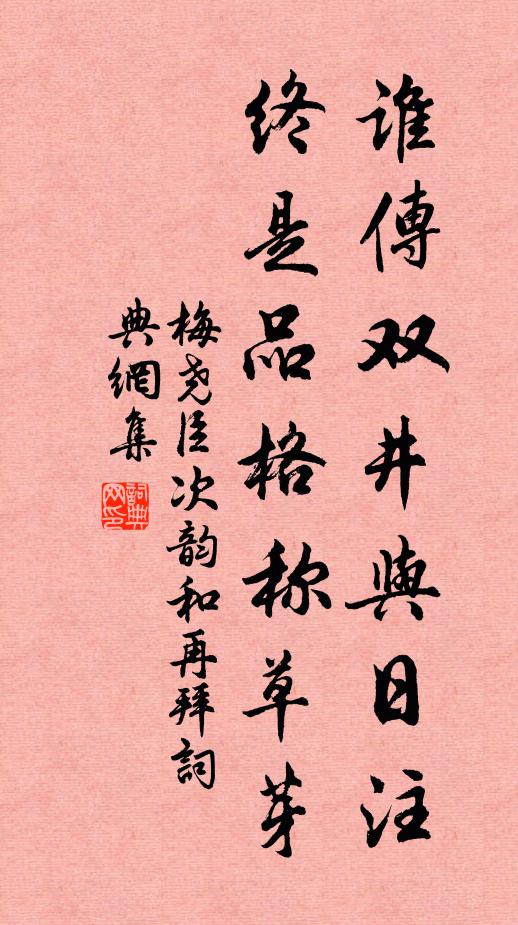 誰傳双井與日注
終是品格称草芽
梅尧臣次韵和再拜詞
典網集
詞典网印